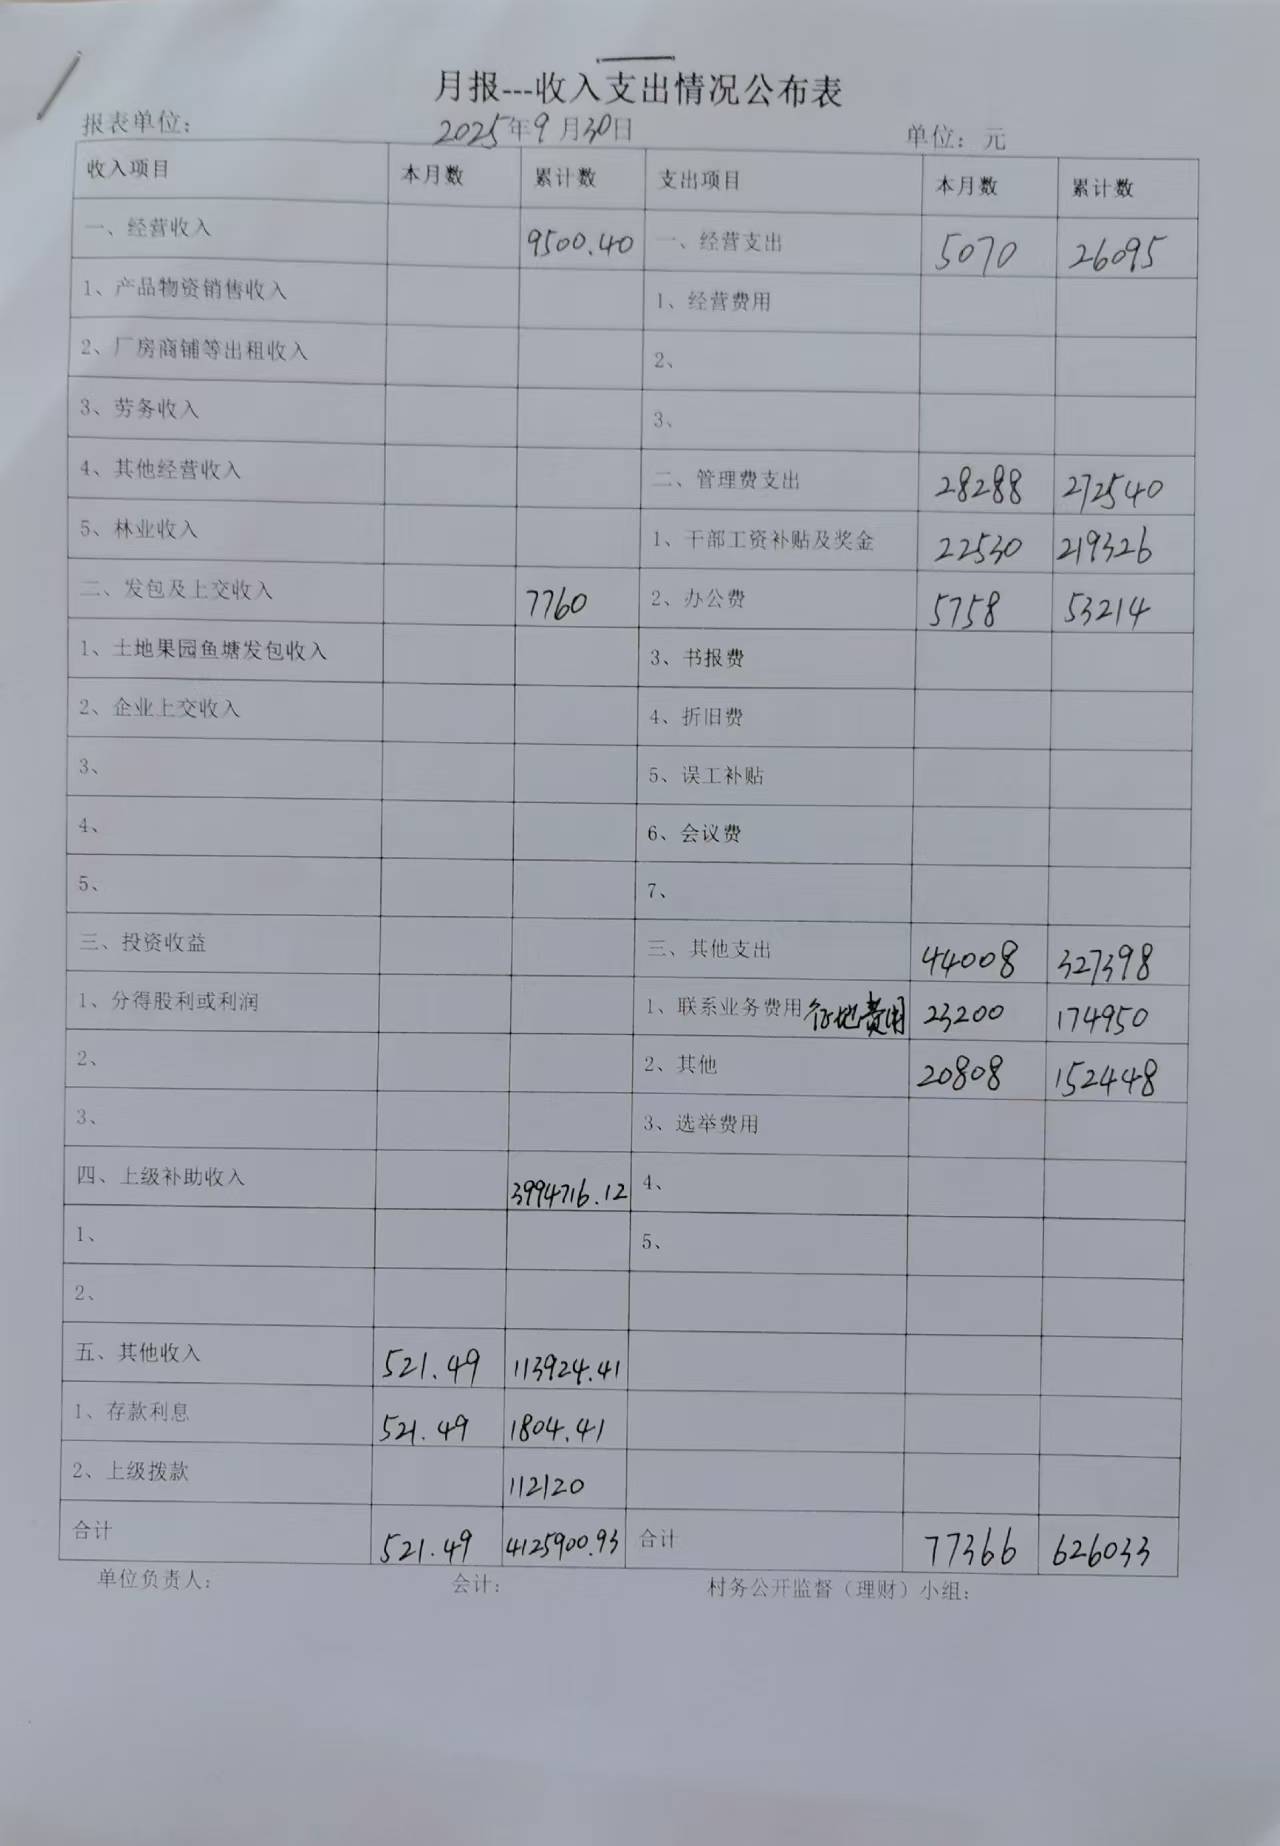 月报---收入支出情况公布表
报表单位： 2025年9月30日 单位：元
收入项目 本月数 累计数 支出项目 本月数 累计数
一、经营收入 9500.40 一、经营支出 5070 26095
1、产品物资销售收入 1、经营费用
2、厂房商铺等出租收入 2、
3、劳务收入 3、
4、其他经营收入 二、管理费支出 28288 272540
5、林业收入 1、干部工资补贴及奖金 22530 219326
二、发包及上交收入 7760 2、办公费 5758 53214
1、土地果园鱼塘发包收入 3、书报费
2、企业上交收入 4、折旧费
3、 5、误工补贴
4、 6、会议费
5、 7、
三、投资收益 三、其他支出 44008 327398
1、分得股利或利润 1、联系业务费用征地费用 23200 174950
2、 2、其他 20808 152448
3、 3、选举费用
四、上级补助收入 3994716.12 4、
1、 5、
2、
五、其他收入 521.49 113924.41
1、存款利息 521.49 1804.41
2、上级拨款 112120
合计 521.49 4125900.93 合计 77366 626033
单位负责人： 会计： 村务公开监督（理财）小组：